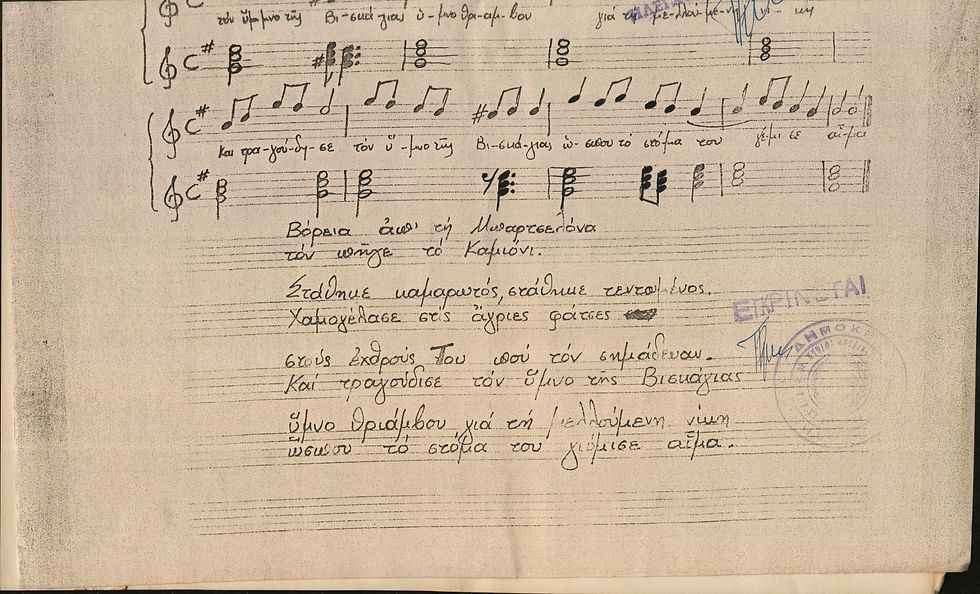 τόν ὕμνο τῆς Βι-σκά-γιας ὑ-μνο θρι-αμ-βου γιά τή με-λλού-με-νη νί-κη
Και τρα-γού-δη-σε τόν ὕ-μνο τῆς Βι-σκά-γιας ὡ-σπου τό στό-μα του γέ-μι-σε αἷμα
Βόρεια ἀπ' τή Μπαρτσελόνα
τόν πῆγε τό Καμιόνι.
Στάθηκε καμαρωτός, στάθηκε τεντωμένος.
Χαμογέλασε στίς ἄγριες φάτσες
ΕΓΚΡΙΝΕΤΑΙ
ΔΗΜΟΚΡ
στούς ἐχθρούς Του πού τόν σημάδευαν.
Και τραγούδισε τόν ὕμνο τῆς Βισκάγιας
ὕμνο θριάμβου γιά τή μελλούμενη νίκη
ὥσπου τό στόμα του γιόμισε αἷμα.